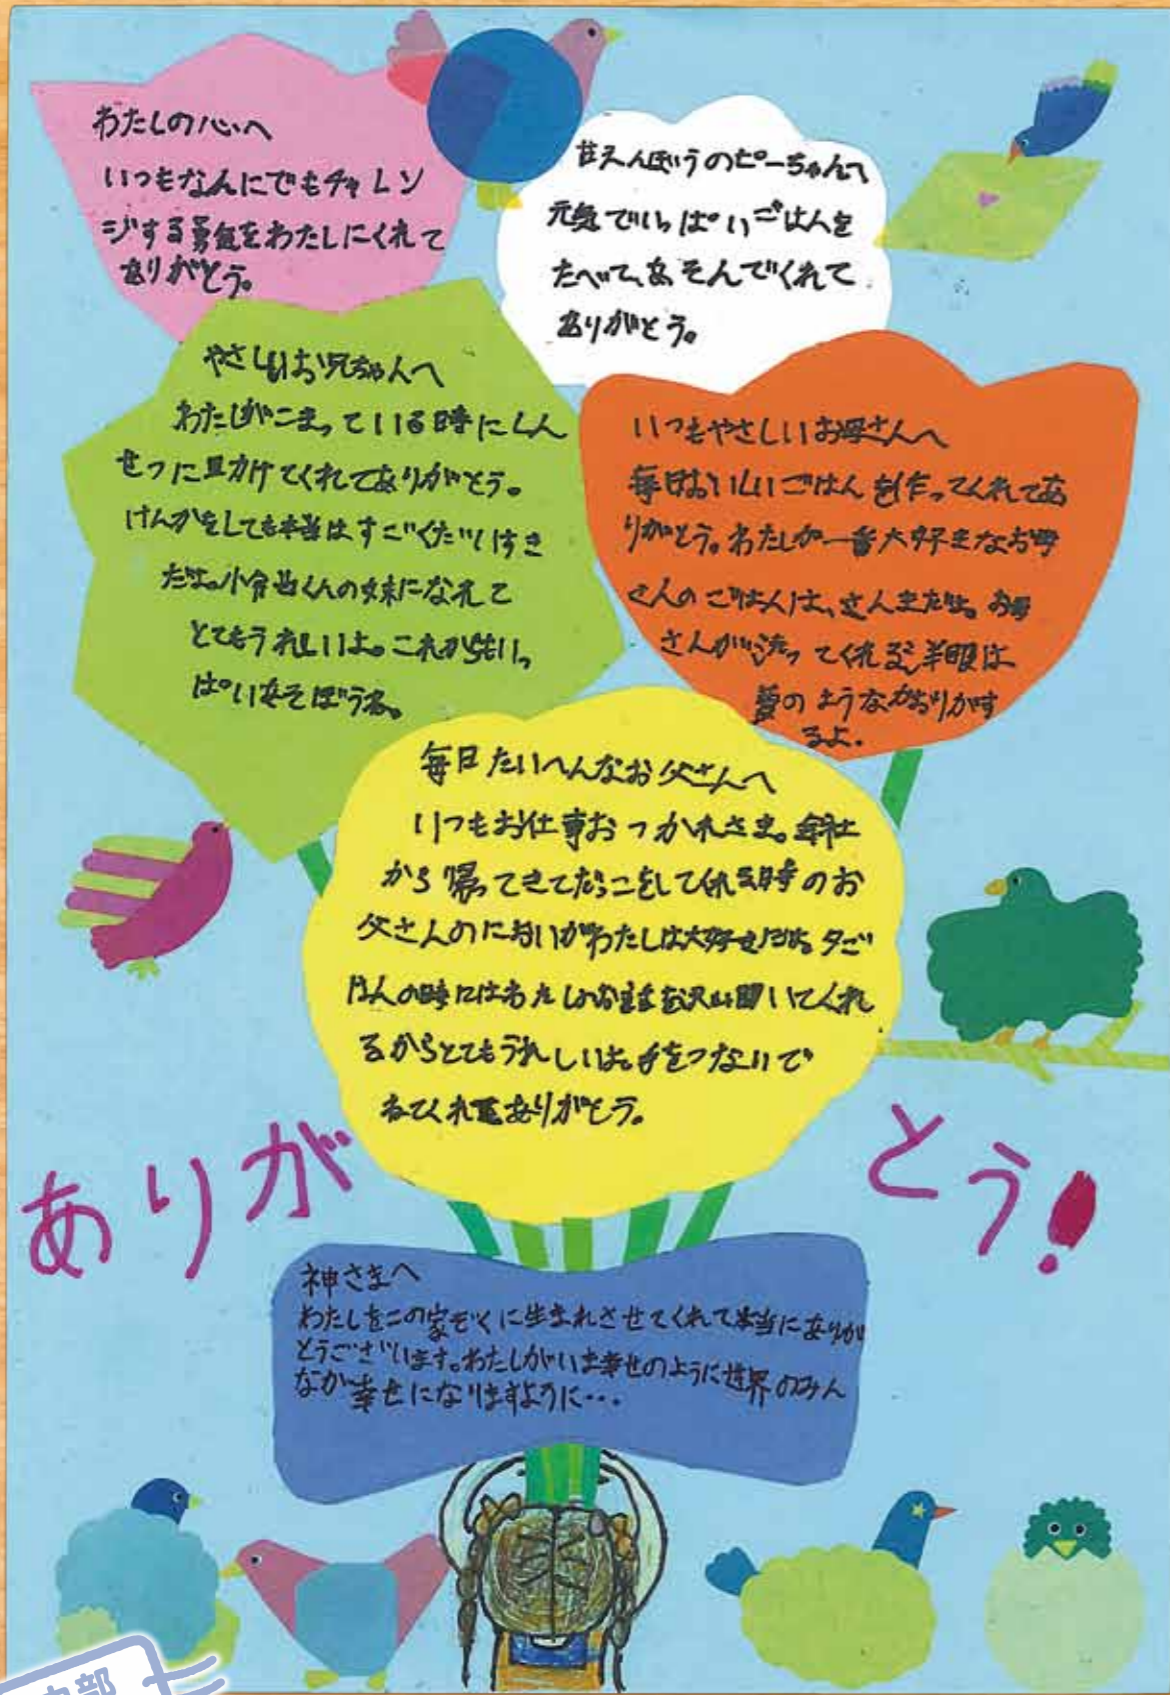 わたしの心へ
いつもなんにでもチャレン
ジする勇気をわたしにくれて
ありがとう。
甘えんぼうのピーちゃんへ
元気でいっぱいごはんを
たべて、あそんでくれて
ありがとう。
やさしいお兄ちゃんへ
わたしがこまっている時にしん
せつに助けてくれてありがとう。
けんかをしても本当はすごくだいすき
だよ。くんの妹になれて
とてもうれしいよ。これからもいっ
ぱいあそぼうね。
いつもやさしいお母さんへ
毎日おいしいごはんを作ってくれてあ
りがとう。わたしが一番大好きなお母
さんのごはんは、さんまだよ。お母
さんが洗ってくれる洋服は
夢のようなかおりがす
るよ.
毎日たいへんなお父さんへ
いつもお仕事おつかれさま。会社
から帰ってきてだっこをしてくれる時のお
父さんのにおいがわたしは大好きだよ。夕ご
はんの時にはわたしのお話を沢山聞いてくれ
るからとてもうれしいよ。手をつないで
ねてくれてありがとう。
ありがとう!
神さまへ
わたしをこの家ぞくに生まれさせてくれて本当にありが
とうございます。わたしがいま幸せのように世界のみん
なが幸せになりますように…